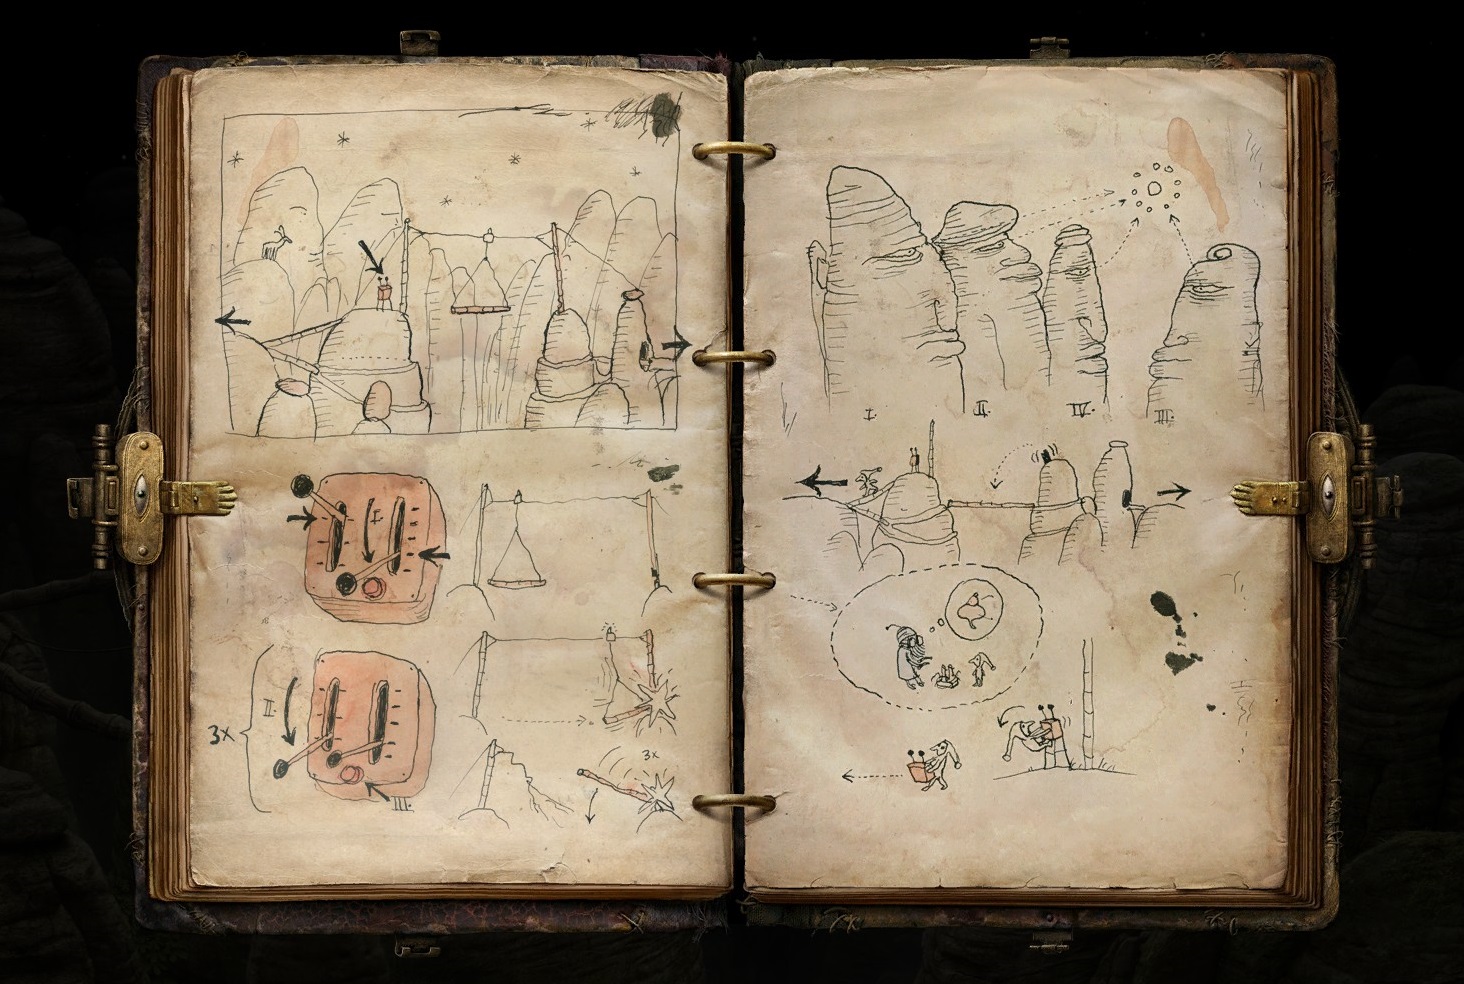 I.
3x
II.
III.
3x
I. II. IV. III.